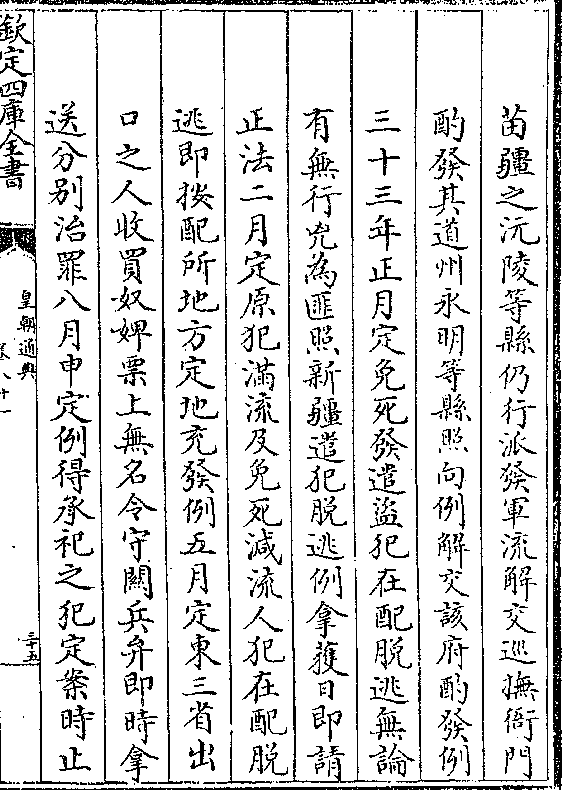 苗疆之沅陵等縣仍行派發軍流解交巡撫衙門
酌發其道州永明等縣照向例解交該府酌發例
三十三年正月定免死發遣盜犯在配脫逃無論
有無行兇為匪照新疆遣犯脫逃例拿獲日即請
正法二月定原犯滿流及免死減流人犯在配脫
逃即按配所地方定地充發例五月定東三省出
口之人收買奴婢票上無名令守關兵弁即時拿
送分別治罪八月申定例得承祀之犯定案時止
欽定四庫全書
皇朝通典
卷八十一
三十五